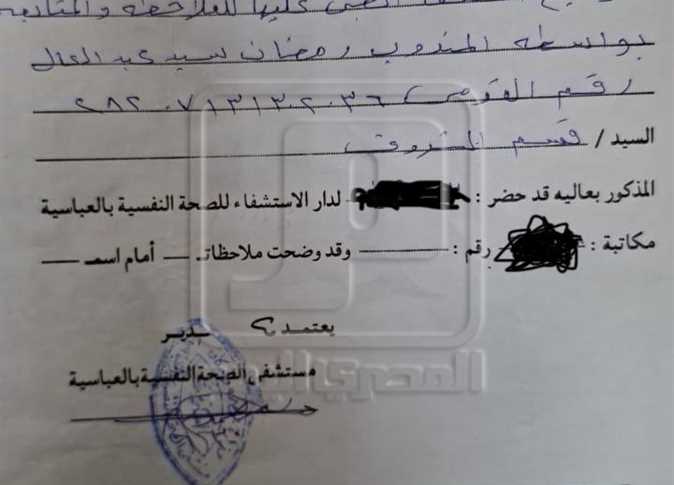 عليها للملاحظة والمتابعة
بواسطة المندوب رمضان سيد عبد العال
رقم القومى / ٢٨٢٠٧١٣١٣٠٢٠٣٦
السيد / قسم الشروق
المذكور بعاليه قد حضر : لدار الاستشفاء للصحة النفسية بالعباسية
مكاتبة : رقم : وقد وضحت ملاحظاتـ أمام اسمـ
يعتمد مدير
مستشفى الصحة النفسية بالعباسية
المصري اليوم